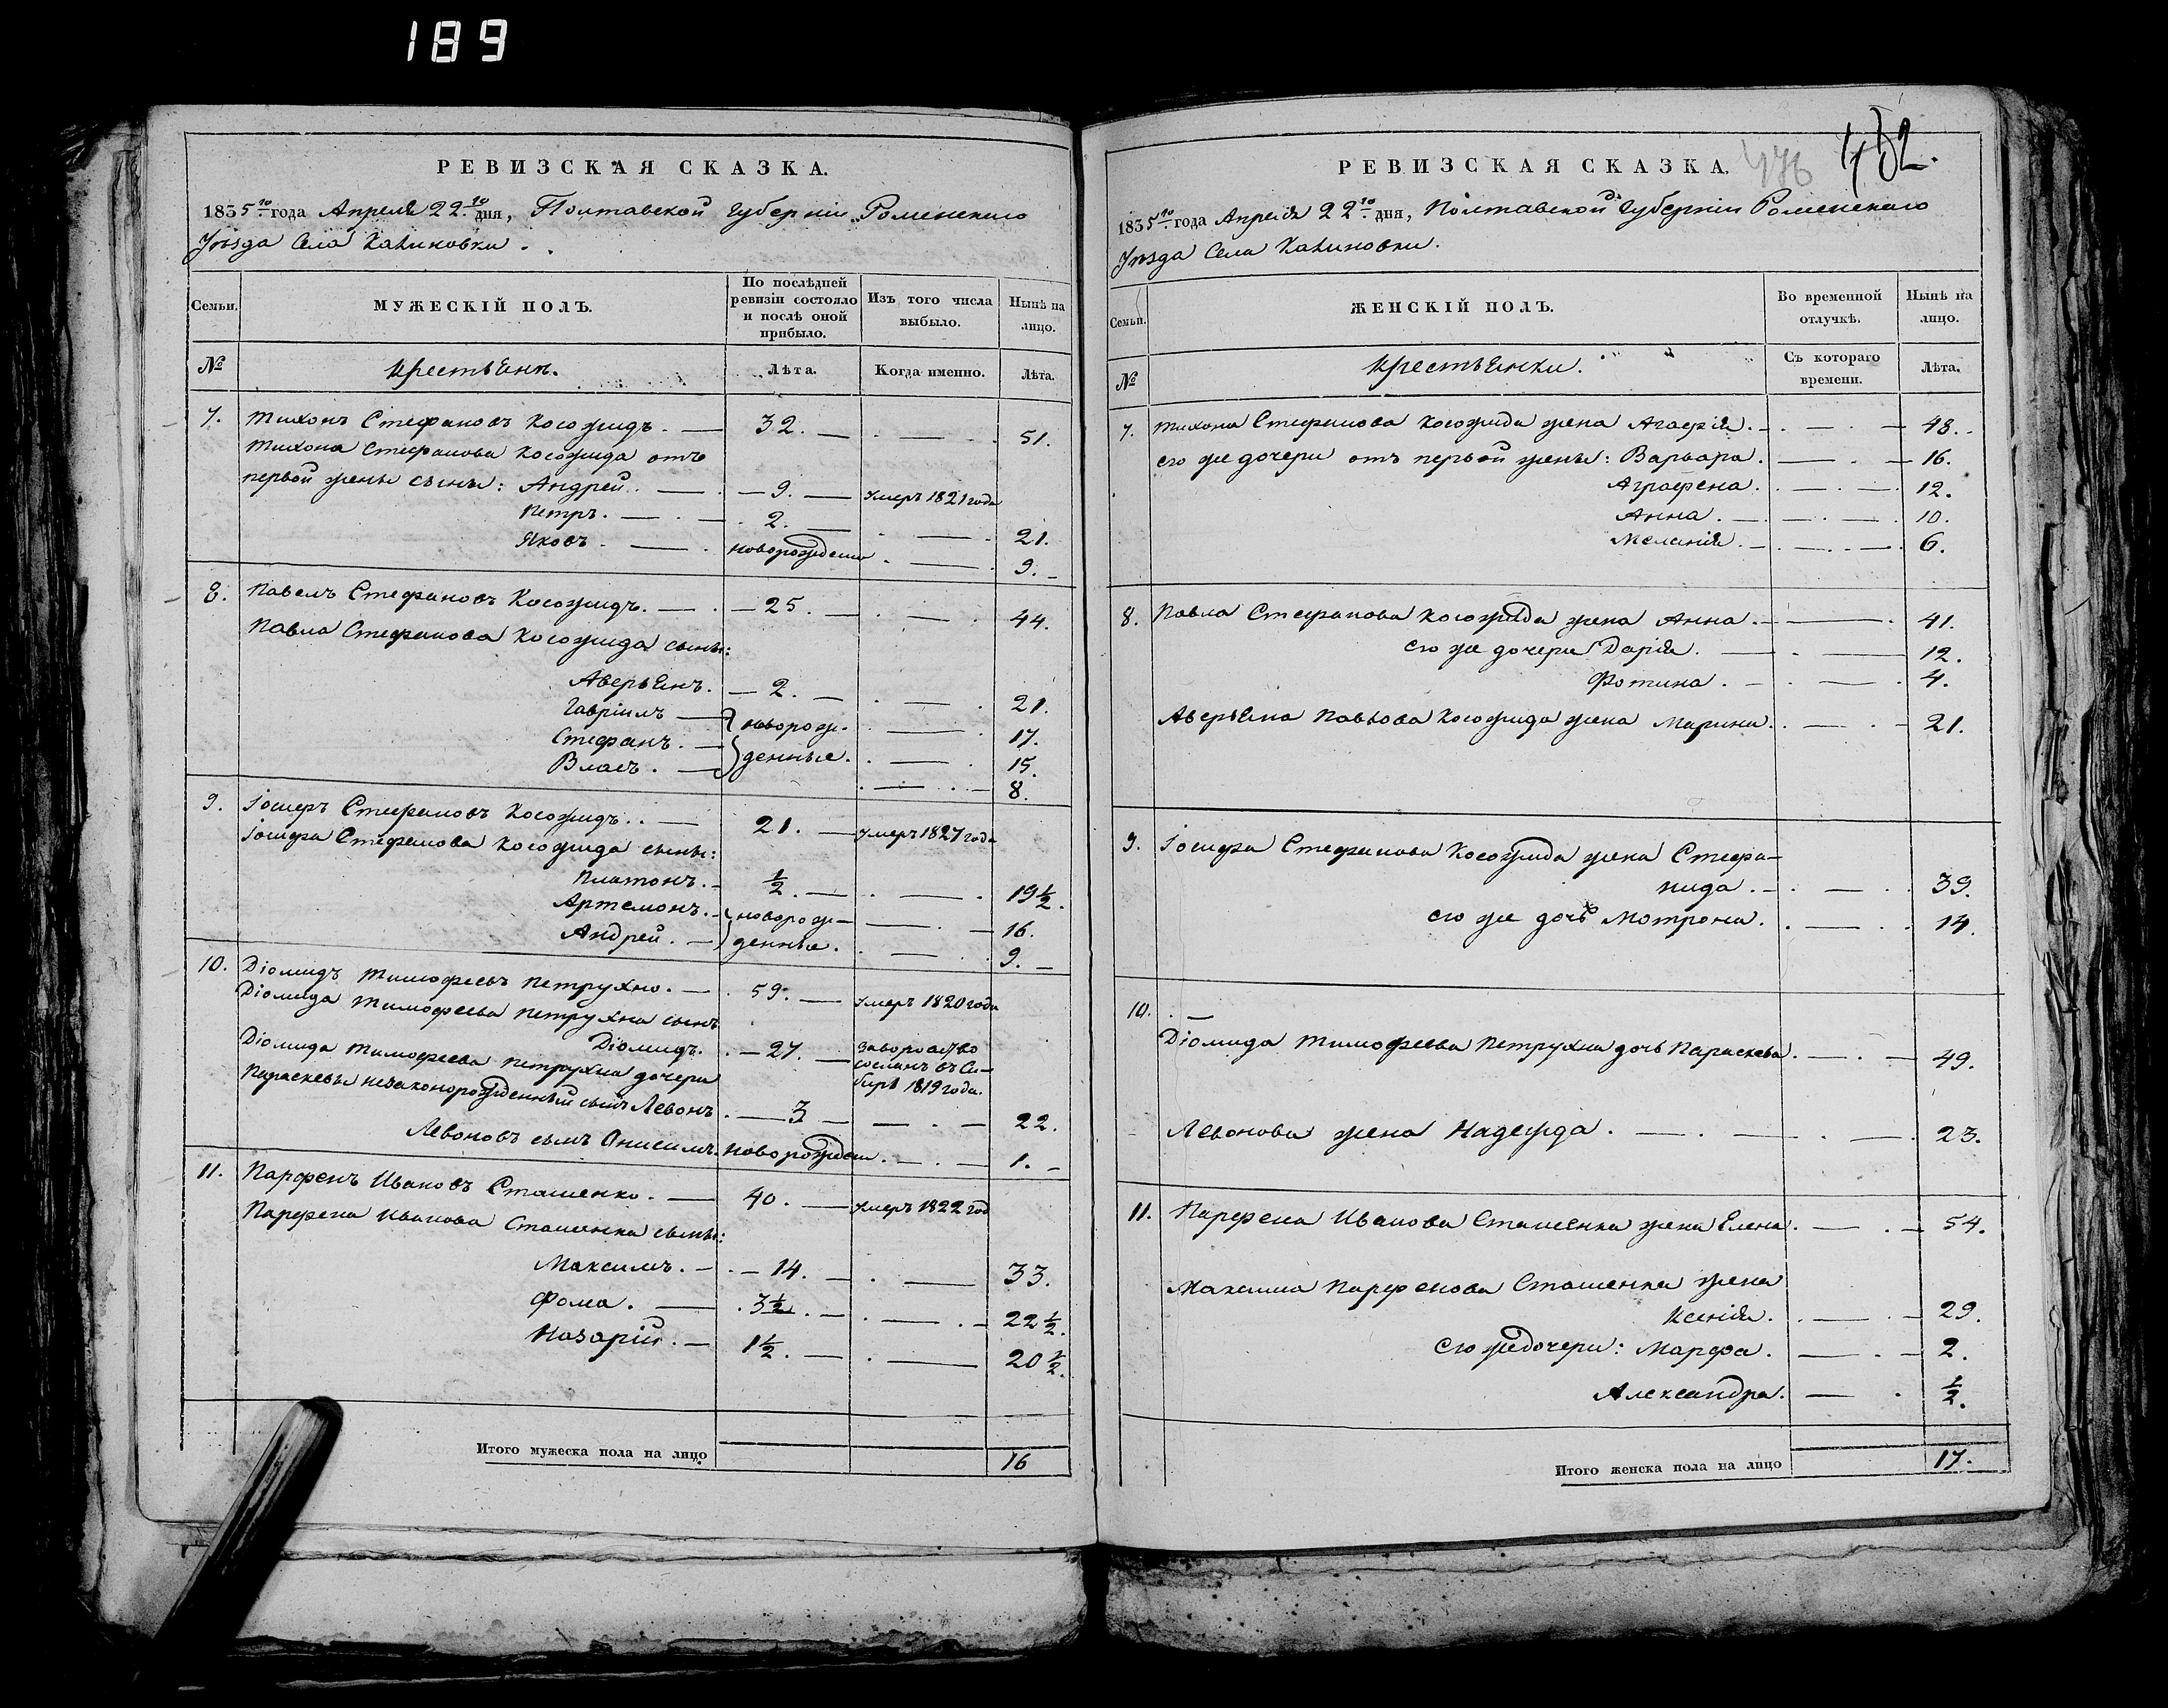 189
РЕВИЗСКАЯ СКАЗКА.
1835го года Апреля 22го дня, Полтавской Губернiи Роменского
Уѣзда Села Калиновки.
Семьи. МУЖЕСКІЙ ПОЛЪ. По послѣдней ревизіи состояло и послѣ оной прибыло. Изъ того числа выбыло. Нынѣ на лицо.
№ Крестьянъ. Лѣта. Когда именно. Лѣта.
7. Тихонъ Стефановъ Косожидъ. 32. 51.
Тихона Стефанова Косожида отъ
первой жены сыны: Андрей. 9. умеръ 1821 года
Петръ. 2. 21.
Яковъ. новорожденн 9.
8. Павелъ Стефановъ Косожидъ. 25. 44.
Павла Стефанова Косожида сыны:
Аверьянъ. 2. 21.
Гавріилъ новорож- 17.
Стефанъ. денные. 15.
Власъ. 8.
9. Іосифъ Стефановъ Косожидъ. 21. умеръ 1827 года
Іосифа Стефанова Косожида сыны:
Платонъ. ½. 19½.
Артемонъ. новорож- 16.
Андрей. денные. 9.
10. Діомидъ Тимофеевъ Петрухно. 59. умеръ 1820 года
Діомида Тимофеева Петрухна сынъ
Діомидъ. 27. за воровство
сосланъ въ Си-
бирь 1819 года.
Діомида Тимофеева Петрухна дочери
Параскевы незаконорожденный сынъ Левонъ. 3 22.
Левоновъ сынъ Онисимъ. новорожден. 1.
11. Парфенъ Ивановъ Сташенко. 40. умеръ 1822 год
Парфена Иванова Сташенка сыны:
Максимъ. 14. 33.
Фома. 3½. 22½.
Назарій. 1½. 20½.
Итого мужеска пола на лицо 16
476 452.
РЕВИЗСКАЯ СКАЗКА.
1835го года Апреля 22го дня, Полтавской Губерніи Роменского
Уѣзда Села Калиновки.
Семьи. ЖЕНСКІЙ ПОЛЪ. Во временной отлучкѣ. Нынѣ на лицо.
№ Крестьянки. Съ котораго времени. Лѣта.
7. Тихона Стефанова Косожида жена Агафія. 48.
его же дочери отъ первой жены: Варвара. 16.
Аграфена. 12.
Анна. 10.
Меланія. 6.
8. Павла Стефанова Косожида жена Анна. 41.
его же дочери Дарія. 12.
Фотина. 4.
Аверьяна Павлова Косожида жена Марина. 21.
9. Іосифа Стефанова Косожида жена Стефа-
нида. 39.
его же дочь Мотрона. 14.
10.
Діомида Тимофеева Петрухна дочь Параскева. 49.
Левонова жена Надежда. 23.
11. Парфена Иванова Сташенка жена Елена. 54.
Максима Парфенова Сташенка жена
Ксенія. 29.
его же дочери: Марфа. 2.
Александра. ½.
Итого женска пола на лицо 17.